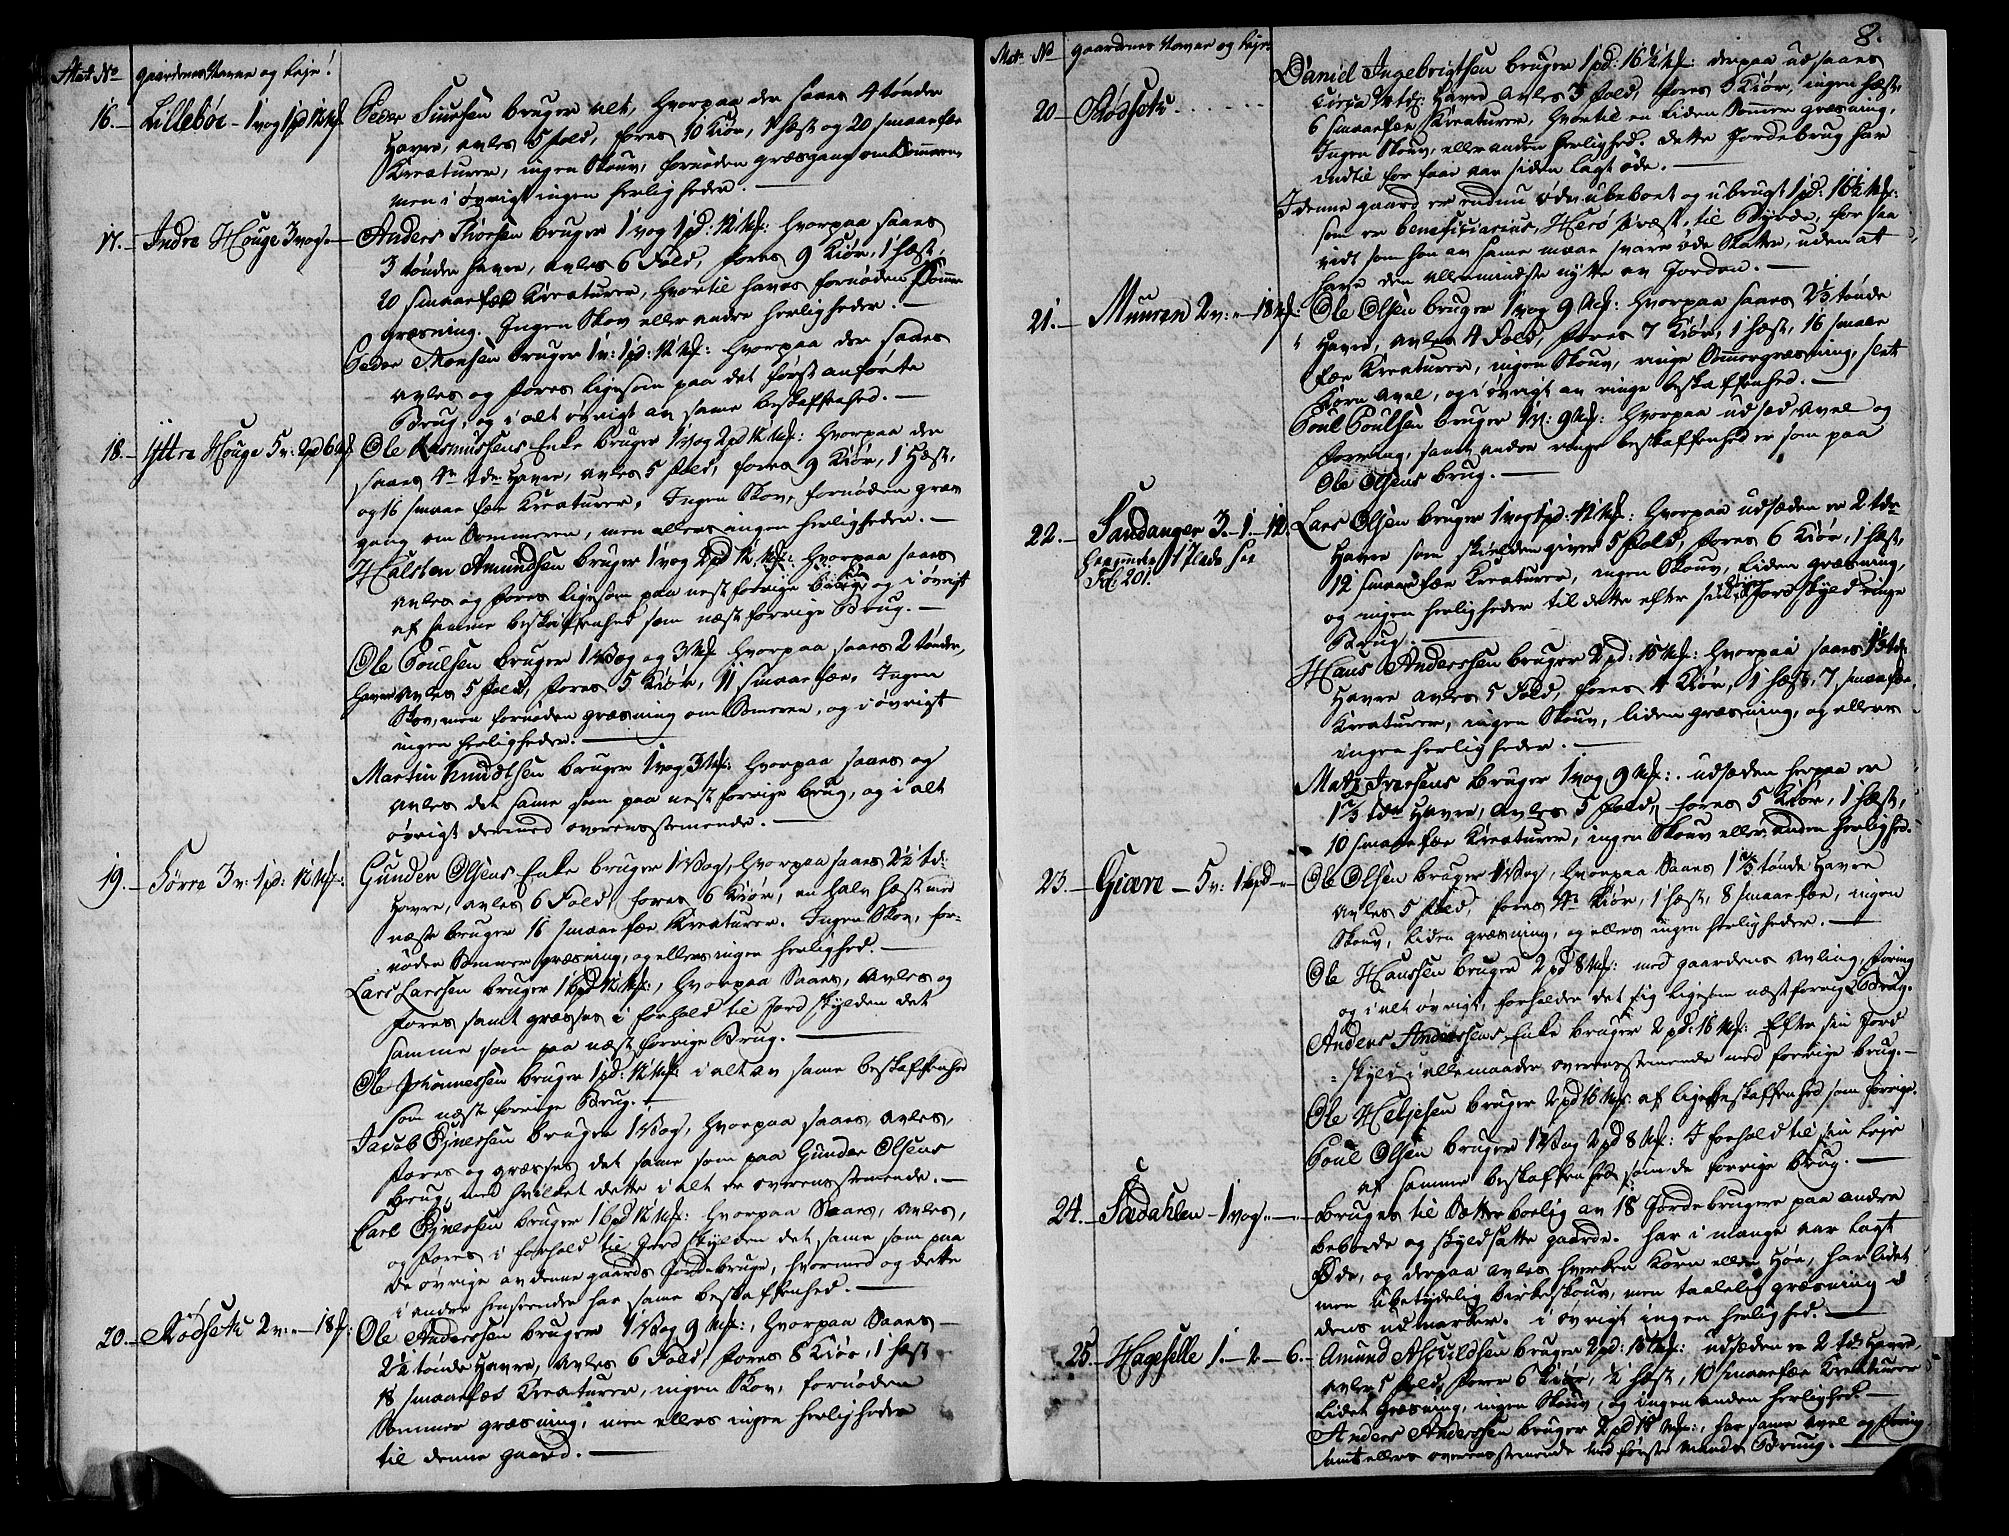 Mat: No gaardenes Navne og leje!
16. Lillebøe - 1 vog 1 pd 12 mk Peder Siursen bruger alt, hvorpaa der saaes 4 tønder
havre, avles 5 fold, fores 10 kiør, 1 hæst og 20 smaae fæe
kreaturer, ingen skouv, fornøden græsgang om Sommeren,
men i øvrigt ingen herligheder. —
17. Indre Houge 3 vog Anders Thorsen bruger 1 vog 1 pd: 12 mk: hvorpaa saaes
3 tønder havre, avles 6 Fold, fores 9 kiør, 1 hæst,
20 smaae fæe kreaturer, hvortil haves fornøden Sommer
græsning. Ingen Skov eller andre herligheder. —
Peder Monsen bruger 1 v: 1 pd: 12 mk: hvorpaa der saaes
avles og fores ligesom paa det først anførte
Brug, og i alt øvrigt av same beskaffenhed. —
18. Yttre Houge 5 v: 2 pd 6 mk Ole Rasmussens Enke bruger 1 vog 2 pd 12 mk: hvorpaa der
saaes 4 tdr havre, avles 5 fold, fores 9 kiør, 1 Hæst,
og 16 smaae fæe kreaturer, Ingen Skov, fornøden græs
gang om Sommeren, men ellers ingen herligheder. —
Halsten Amundsen bruger 1 vog 2 pd 12 mk: hvorpaa saaes
avles og fores ligesom paa nest forrige brug og i øvrigt
af samme beskaffenhed som næst forrige Brug. —
Ole Poulsen bruger 1 Vog og 3 mk hvorpaa saaes 2 tønder
havre avles 5 fold, fores 5 kiør, 11 smaae fæe, Ingen
Skov, men fornøden græsning om Someren, og i øvrigt
ingen herligheder. —
Martin Knudtsen bruger 1 vog 3 mk: hvorpaa saaes og
avles det same som paa nest forrige brug, og i alt
øvrigt dermed overensstemende. —
19. Tørre 3 v: 1 pd: 12 mk: Gunder Olsens Enke bruger 1 Vog, hvorpaa saaes 2½ td:
havre, avles 6 Fold, fores 6 kiør, en halv hæst med
næste bruger 16 smaae fæe kreaturer. Ingen Skov, for-
nøden Sommer græsning, og ellers ingen herlighed. —
Lars Larssen bruger 1 bpd 12 mk:, hvorpaa Saaes, avles og
fores samt græsses i forhold til Jord skylden det
samme som paa næst forrige Brug. —
Ole Johannessen bruger 1 pd: 12 mk i alt av same beskaffenhed
som næst forrige Brug. —
Jacob Ejnersen bruger 1 Vog, hvorpaa saaes, avles,
fores og græsses det same som paa Gunder Olsens
brug, med hvilket dette i alt er overensstemende. —
Carl Ejnersen bruger 1 bpd 12 mk: hvorpaa Saaes, avles,
og fores i forhold til Jord skylden det same som paa
de øvrige av denne gaards Jordebruge, hvormed og dette
i andre henseender har same beskaffenhed. —
20. Rødsete 2 v: „ 18 mk: Ole Anderssen bruger 1 Vog 9 mk:, hvorpaa Saaes —
2½ tønde havre, avles 6 Fold, fores 8 kiør, 1 hæst
18 smaae fæe kreaturer, ingen Skov, fornøden
Sommer græsning, men ellers ingen herligheder
til denne gaard. —
8.
Mat: No gaardenes Navne og leje
20 Rødsete Daniel Ingebrigtsen bruger 1 pd: 16½ mk: derpaa udsaaes
circa td: havre avles 3 fold, fores 3 kiør, ingen hæst,
6 smaae fæe kreaturer, hvortil en liden Sommer græsning,
Ingen Skouv, eller anden herlighed. dette Jordebrug har
indtil for faae aar siden lagt øde. —
I denne gaard er endnu øde ubeboet og ubrugt 1 pd: 16½ mk:
som er beneficiarius, Herø Præst, til Byrde, for saa
vidt som han av same maae svare øde Skatter, uden at
have den allermindste nytte av Jorden. —
21. Muuren 2 v: „ 18 mk: Ole Olsen bruger 1 vog 9 mk: hvorpaa saaes 2⅓ tønde
havre, avles 4 Fold, fores 7 kiør, 1 hæst, 16 smaae
fæe kreaturer, ingen Skouv, ringe Sommergræsning, slet
korn avel, og i øvrigt av ringe beskaffenhed. —
Poul Poulsen bruger 1 v: 9 mk: hvorpaa udsæd, avel og
foering, samt anden ringe beskaffenhed er som paa
Ole Olsens brug. —
22. Sandanger 3. 1. 12. Lars Olsen bruger 1 vog 1 pd: 12 mk: hvorpaa udsæden er 2 tdr
havre som skielden giver 5 fold, fores 6 kiør, 1 hæst,
12 smaae fæe kreaturer, ingen Skouv, liden græsning,
og ingen herligheder til dette efter sin Jordskyld ringe
Brug. —
Hans Anderssen bruger 2 pd: 15 mk: hvorpaa saaes 1½ td:
havre avles 5 Fold, fores 4 kiør, 1 hæst, 7 smaae fæe
kreaturer, ingen Skouv, liden græsning, og ellers
ingen herligheder. —
Matz Iversens bruger 1 vog 9 mk: udsæden herpaa er
1⅔ tdr havre, avles 5 fold, fores 5 kiør, 1 hæst,
10 smaae fæe kreaturer, ingen Skouv eller anden herlighed.
23. Giære - 5 v: 1 bpd „ Ole Olsen bruger 1 Vog, hvorpaa Saaes 1⅔ tønde havre
avles 5 fold, fores 4 kiør, 1 hæst, 8 smaae fæe, ingen
Skouv, liden græsning, og ellers ingen herligheder. —
Ole Hanssen bruger 2 pd 8 mk: med gaardens avling, foring
og i alt øvrigt, forholder det sig ligesom næst forrige Brug.
Anders Anderssens Enke bruger 2 pd: 16 mk: Efter sin Jord
skyld i allemaader overensstemende med forrige brug. —
Ole Helgesen bruger 2 pd 16 mk: af lige beskaffenhed som forrige.
Poul Olsen bruger 1 Vog 2 pd 8 mk: I forhold til sin leje
af samme beskaffenhed som de forrige Brug. —
24. Sædahlen - 1 vog „ „ Bruges til Sætterboelig av 18 Jordebrugere paa andre
beboede og skyldsatte gaarde. har i mange aar lagt
Øde, og derpaa avles hverken korn eller høe, har lidet
men ubetydelig birkeskouv, men taalelig græsning i
dens udmarker. i øvrigt ingen herlighed. —
25. Hageselle 1. 2 - 6. Amund Aschildsen bruger 2 pd: 15 mk: udsæden er 2 tdr havre,
avles 5 fold, fores 6 kiør, ½ hæst, 10 smaae fæe kreaturer
lidet græsning, ingen Skouv, og ingen anden herlighed. —
Anders Anderssen bruger 2 pd 15 mk:, har same avel og foring
samt ellers overensstemende med første Mands Bruug. —